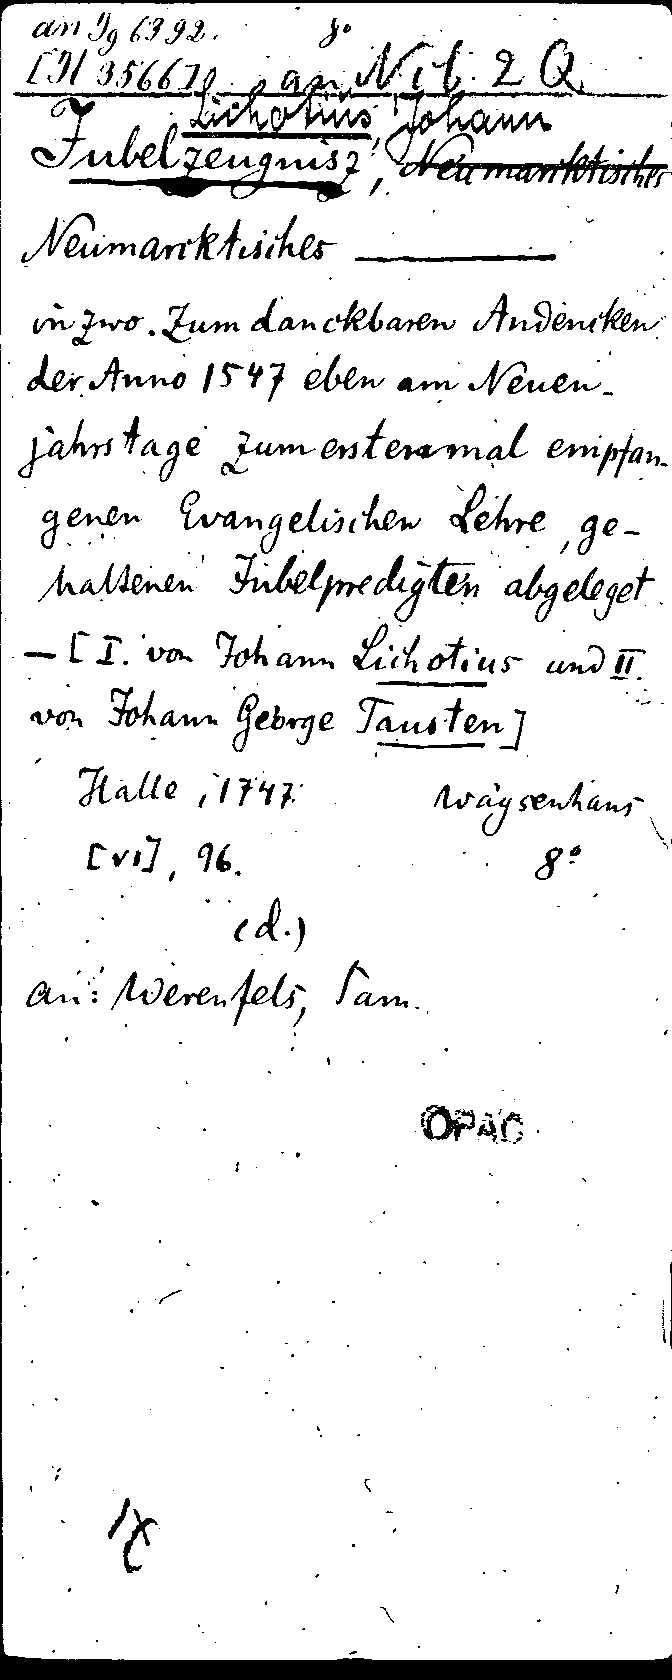 an Jg 6392. 8°
[H 35667] an Nib. 2 Q
Lichotius, Johann
Jubelzeugnisz, Neumarcktisches
Neumarcktisches ———
in zwo. Zum danckbaren Andencken
der Anno 1547 eben am Neuen-
jahrstage zum erstenmal empfan-
genen Evangelischen Lehre, ge-
haltenen Jubelpredigten abgeleget
— [I. von Johann Lichotius und II.
von Johann George Tausten]
Halle, 1747. Wäysenhaus
[VI], 96. 8°
(d.)
an: Werenfels, Sam.
OPAC